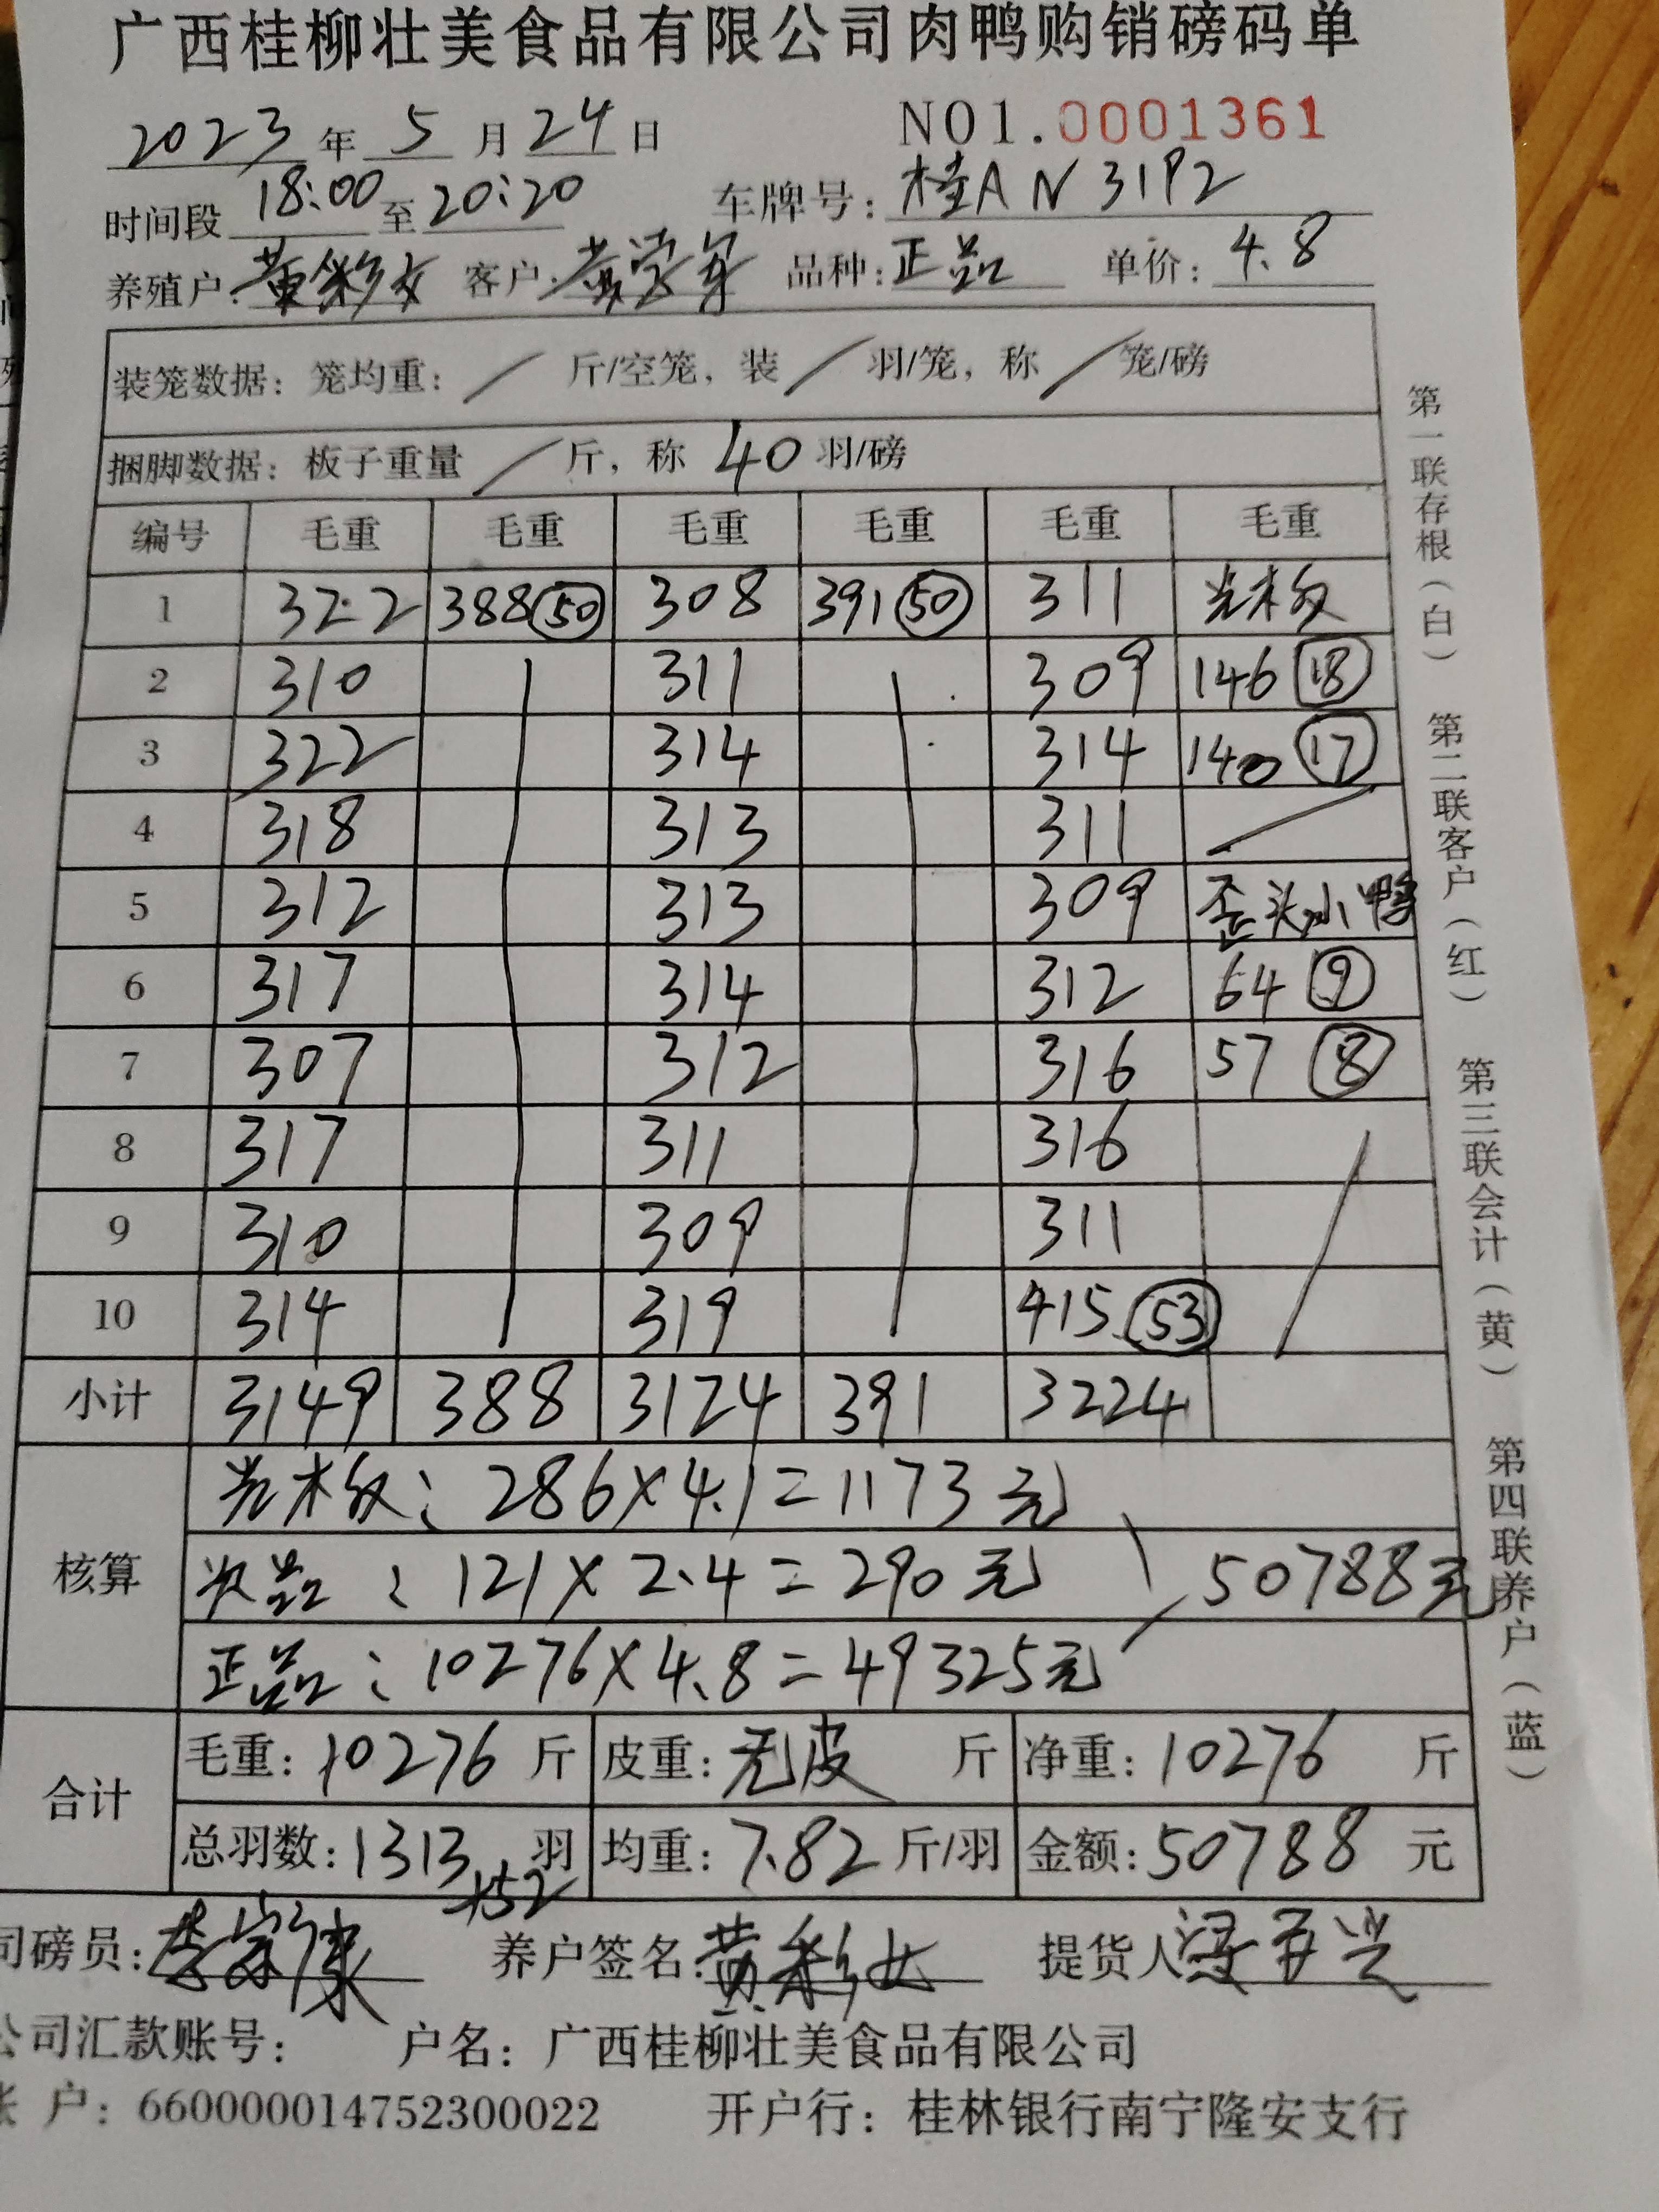 广西桂柳壮美食品有限公司肉鸭购销磅码单
2023年5月24日 NO1.0001361
时间段18:00至20:20 车牌号:桂AN3192
养殖户: 客户: 品种:正品 单价:4.8
装笼数据:笼均重:/斤/空笼,装/羽/笼,称/笼/磅
捆脚数据:板子重量/斤,称40羽/磅
编号 毛重 毛重 毛重 毛重 毛重 毛重
1 322 388(50) 308 391(50) 311 光木板
2 310 311 309 146(18)
3 322 314 314 140(17)
4 318 313 311 /
5 312 313 309 歪头小鸭
6 317 314 312 64(9)
7 307 312 316 57(8)
8 317 311 316
9 310 309 311
10 314 319 415(53)
小计 3149 388 3124 391 3224
核算
光木板:286×4.1=1173元
次品:121×2.4=290元 50788元
正品:10276×4.8=49325元
合计
毛重:10276斤 皮重:无皮斤 净重:10276斤
总羽数:1313羽 均重:7.82斤/羽 金额:50788元
+52
司磅员:李宗康 养户签名: 提货人
公司汇款账号: 户名:广西桂柳壮美食品有限公司
户:660000014752300022 开户行:桂林银行南宁隆安支行
第一联存根(白) 第二联客户(红) 第三联会计(黄) 第四联养户(蓝)